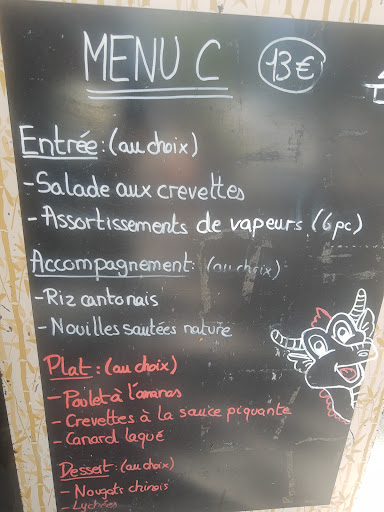 MENU C 13€
Entrée: (au choix)
- Salade aux crevettes
- Assortissements de vapeurs (6pc)
Accompagnement: (au choix)
- Riz cantonais
- Nouilles sautées nature
Plat: (au choix)
- Poulet à l'ananas
- Crevettes à la sauce piquante
- Canard laqué
Dessert: (au choix)
- Nougats chinois
- Lychées